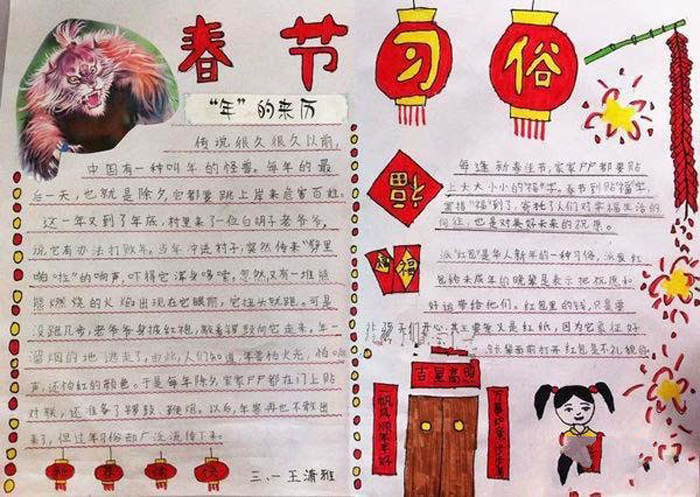 春节习俗
“年”的来历
传说,很久很久以前,
中国有一种叫年的怪兽。每年的最
后一天,也就是除夕,它都要跳上岸来危害百姓。
这一年又到了年底,村里来了一位白胡子老爷爷,
说它有办法打败年。当年冲进村子,突然传来“劈里
啪啦”的响声,吓得它浑身哆嗦。忽然,又有一堆
熊燃烧的火焰出现在它眼前,它扭头就跑。可是
没跑几步,老爷爷身披红袍,敲着锣鼓向它走来。年一
溜烟的地逃走了,由此,人们知道,年害怕火光,怕响
声,还怕红的颜色。于是每年除夕,家家户户都在门上贴
对联,还准备了锣鼓、鞭炮。以后,年兽再也不敢出
来了,但过年习俗却广泛流传下来。
三、一 王潇雅
每逢新春佳节,家家户户都要贴
上大大小小的“福”字。春节到贴“福”字,
了,寄托了人们对幸福生活的
向往,也是对美好未来的祝愿。
福
派“红包”是华人新年的一种习俗,派发红
包给未成年的晚辈是表示把祝愿和
好运带给他们。红包里的钱,只是要
开心,其主要意义是红纸,因为它象征好
面前打开红包是不礼貌的
福
吉星高照
一帆风顺年年好
万事如意步步高